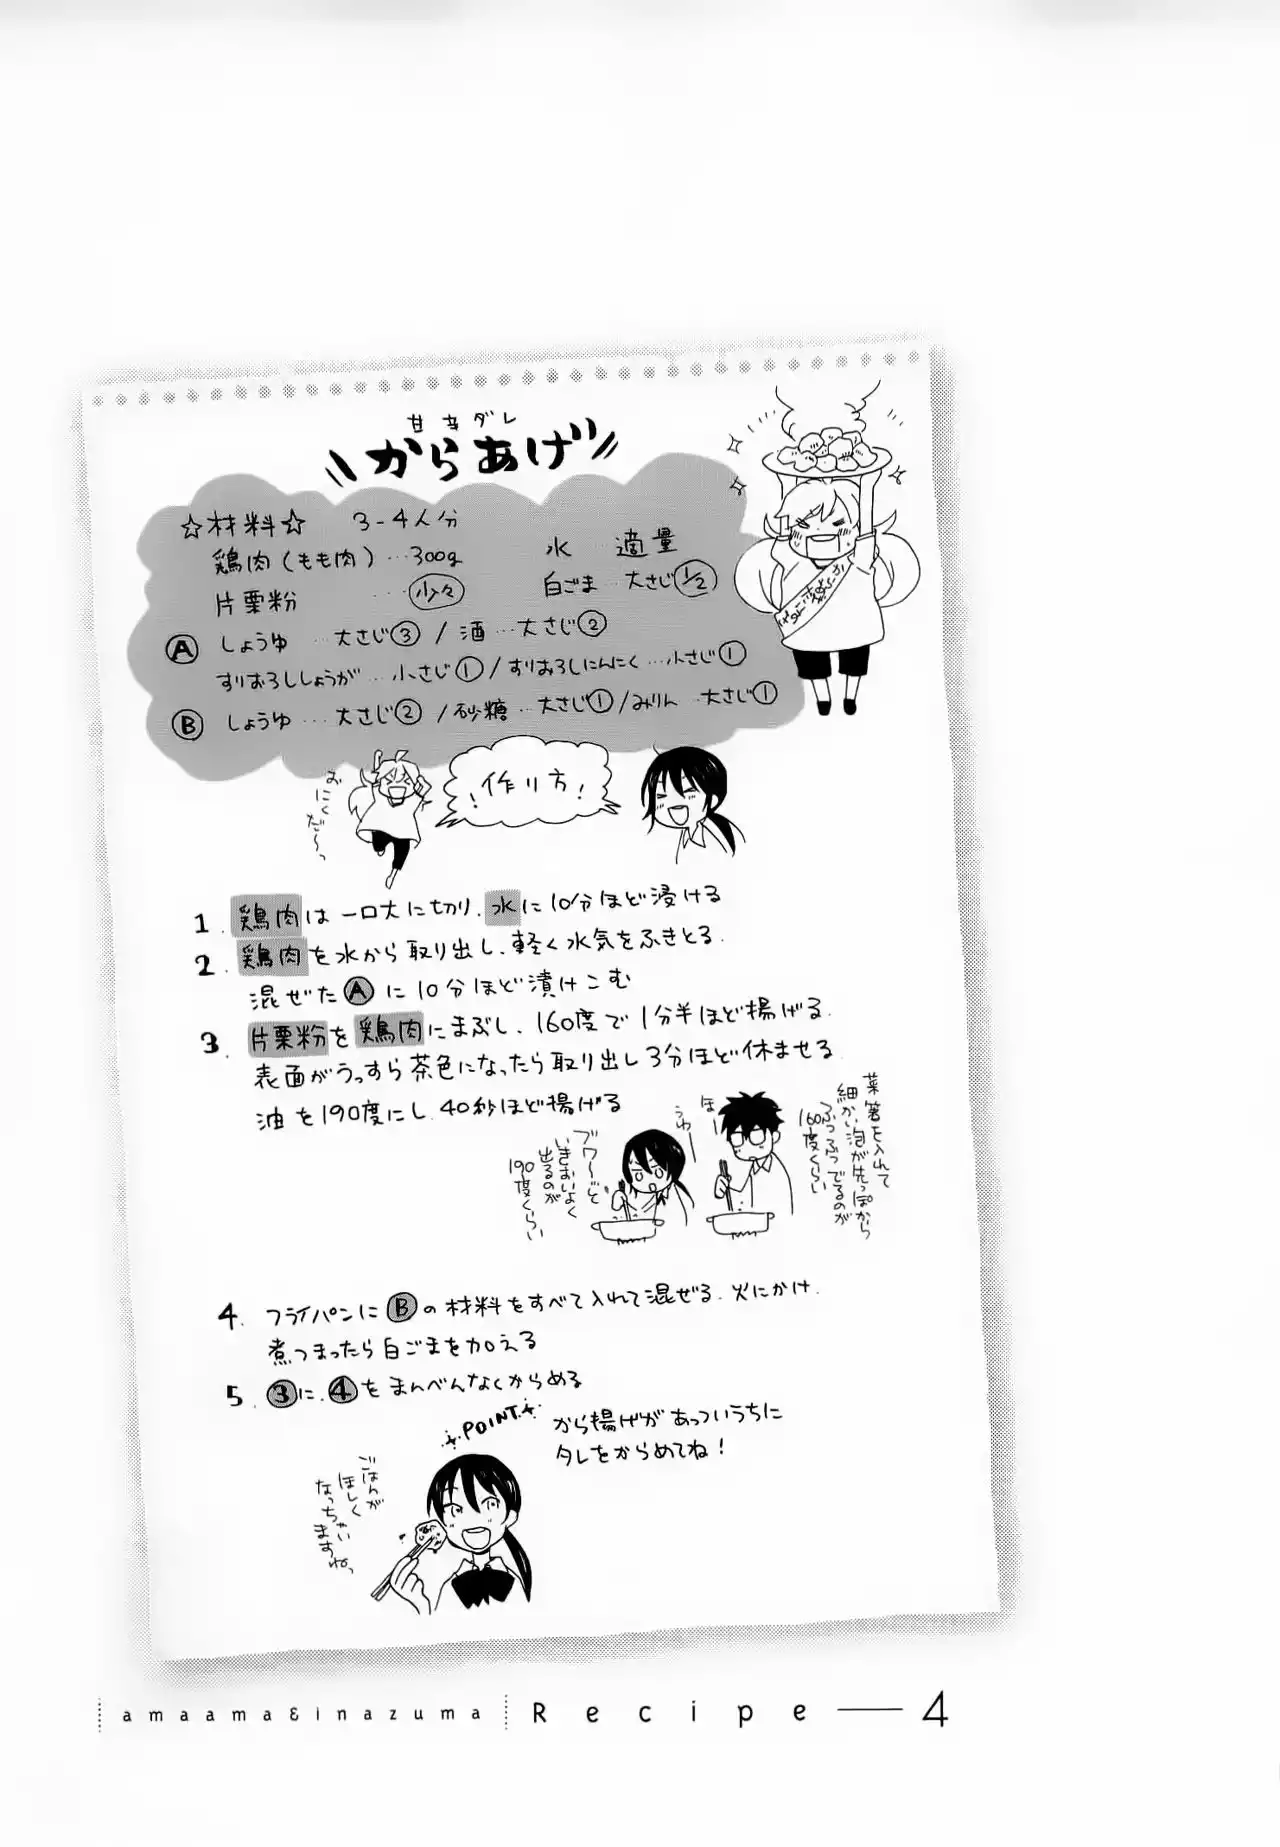 甘辛ダレ
からあげ
☆材料☆ 3-4人分
鶏肉(もも肕)…300g
片栗粉 …少々
水 …適量
白ごま…大さじ1/2
Ⓐ しょうゆ …大さじ③/酒 …大さじ②
すりおろししょうが…小さじ①/すりおろしにんにく…小さじ①
Ⓑ しょうゆ…大さじ②/砂糖…大さじ①/みりん…大さじ①
おにくだ〜っ
作り方!
1. 鶏肉は一口大に切り、水に10分ほど浸ける
2. 鶏肉を水から取り出し、軽く水気をふきとる.
混ぜたⒶに10分ほど漬けこむ
3. 片栗粉を鶏肉にまぶし、160度で1分半ほど揚げる.
表面がうっすら茶色になったら取り出し3分ほど休ませる.
油を190度にし、40秒ほど揚げる
菜箸を入れて
細かい泡が先っぽから
ふつふつでるのが
160度くらい
ほー
うわー
ブワ〜っと
いきおいよく
出るのが
190度くらい
4. フライパンにⒷの材料をすべて入れて混ぜる.火にかけ、
煮つまったら白ごまを加える
5. ③に、④をまんべんなくからめる
POINT
から揚げがあついうちに
タレをからめてね!
ごはんが
ほしく
なっちゃい
ますね。
amaama&inazuma Recipe — 4